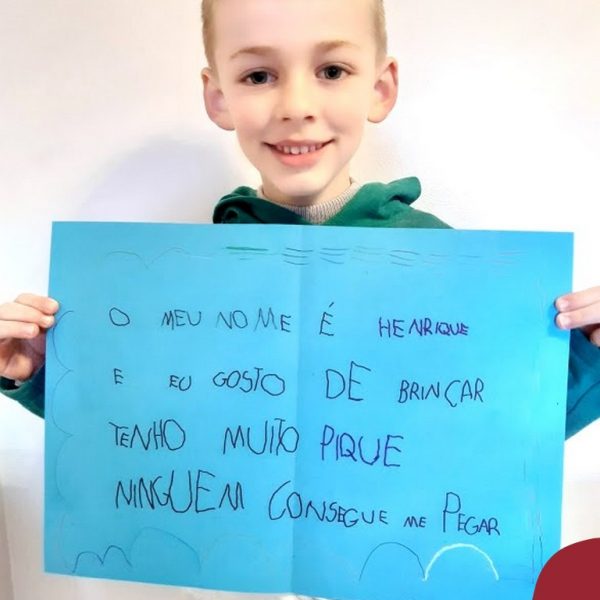 O MEU NOME É HENRIQUE
E EU GOSTO DE BRINCAR
TENHO MUITO PIQUE
NINGUEM CONSEGUE ME PEGAR